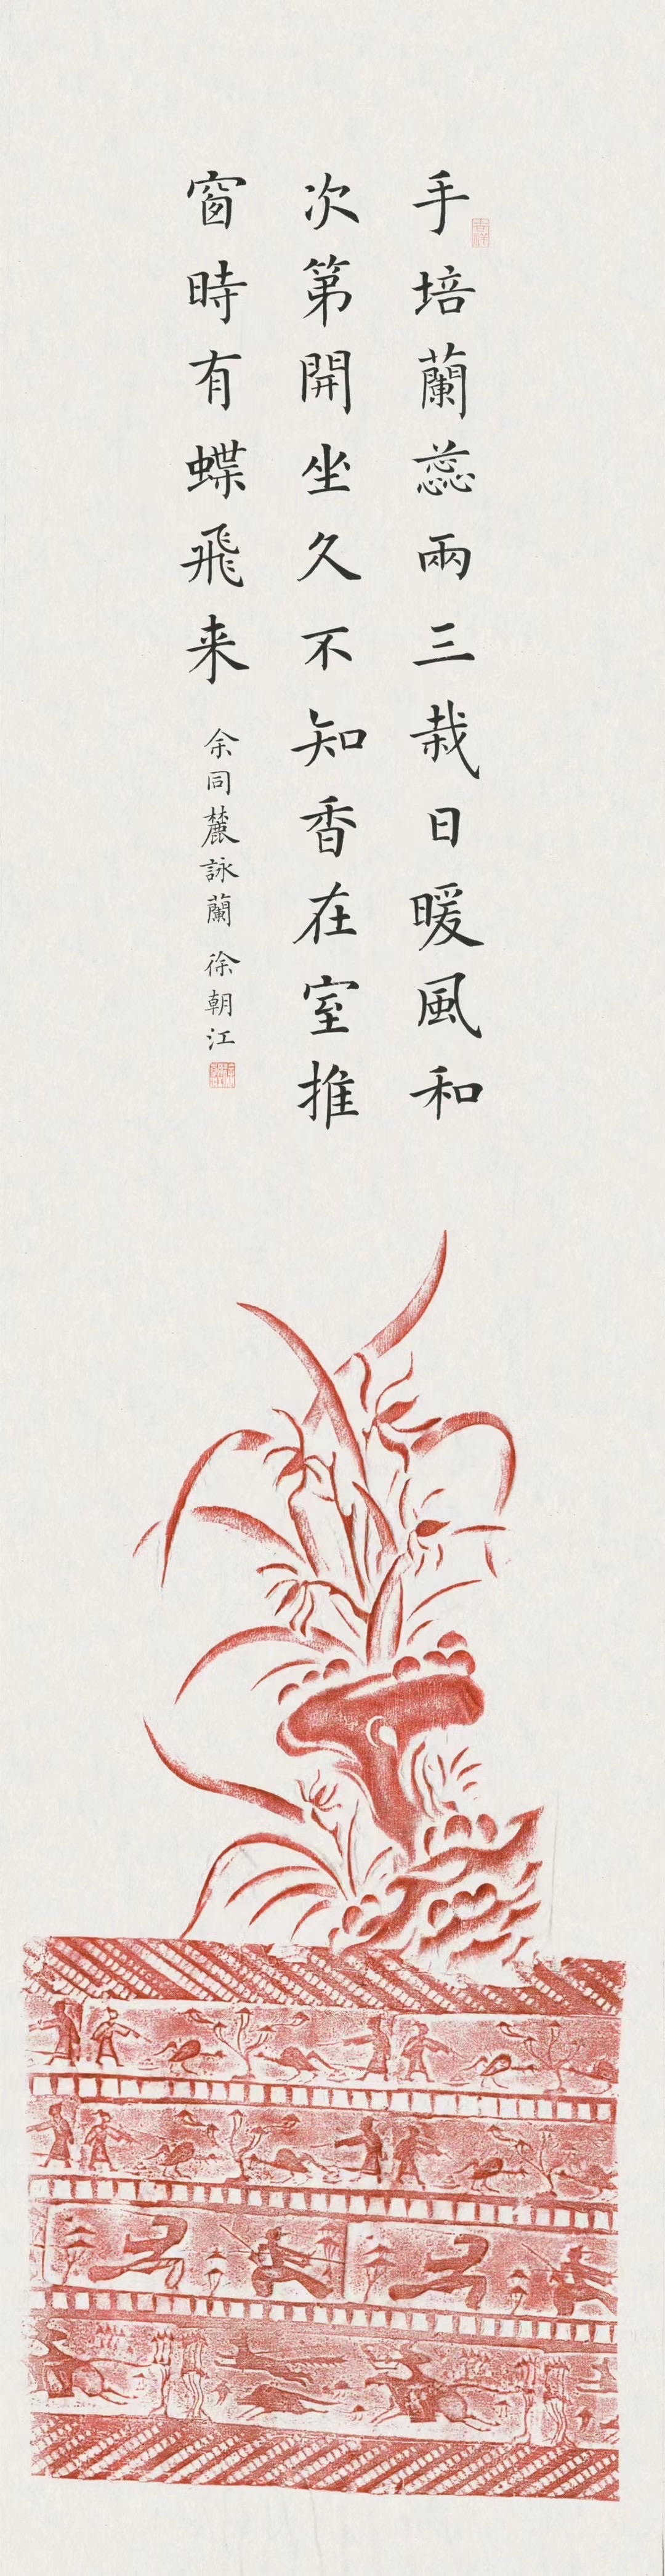 手培蘭蕊兩三栽日暖風和
次第開坐久不知香在室推
窗時有蝶飛来
余同麓詠蘭 徐朝江